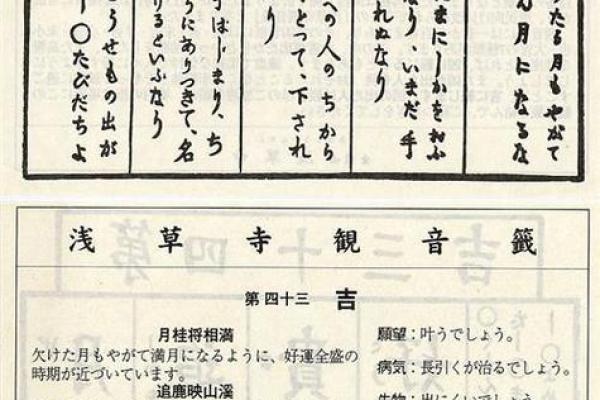 たる月もやがて
ん月になるな
たまにしかをおふ
なり、いまだ手
れぬなり
への人のちから
とつて、下され
り
はじまり、ち
うにありつきて、名
けるといふなり
うせもの出が
〇たびだちよ
浅草寺観音籤
第四十三 吉
月桂将相満
欠けた月もやがて満月になるように、好運全盛の
時期が近づいています。
追鹿映山溪
願望：叶うでしょう。
病気：長引くが治るでしょう。
失物：出にくいでしょう。